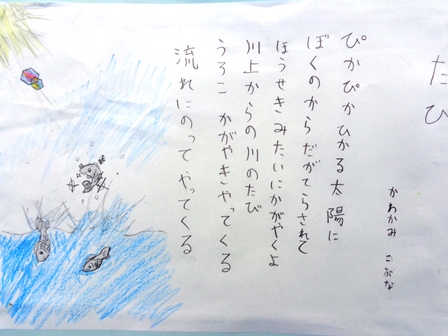 たび
かわかみ こぶな
ぴかぴかひかる太陽に
ぼくのからだがてらされて
ほうせきみたいにかがやくよ
川上からの川のたび
うろこ かがやきやってくる
流れにのって やってくる